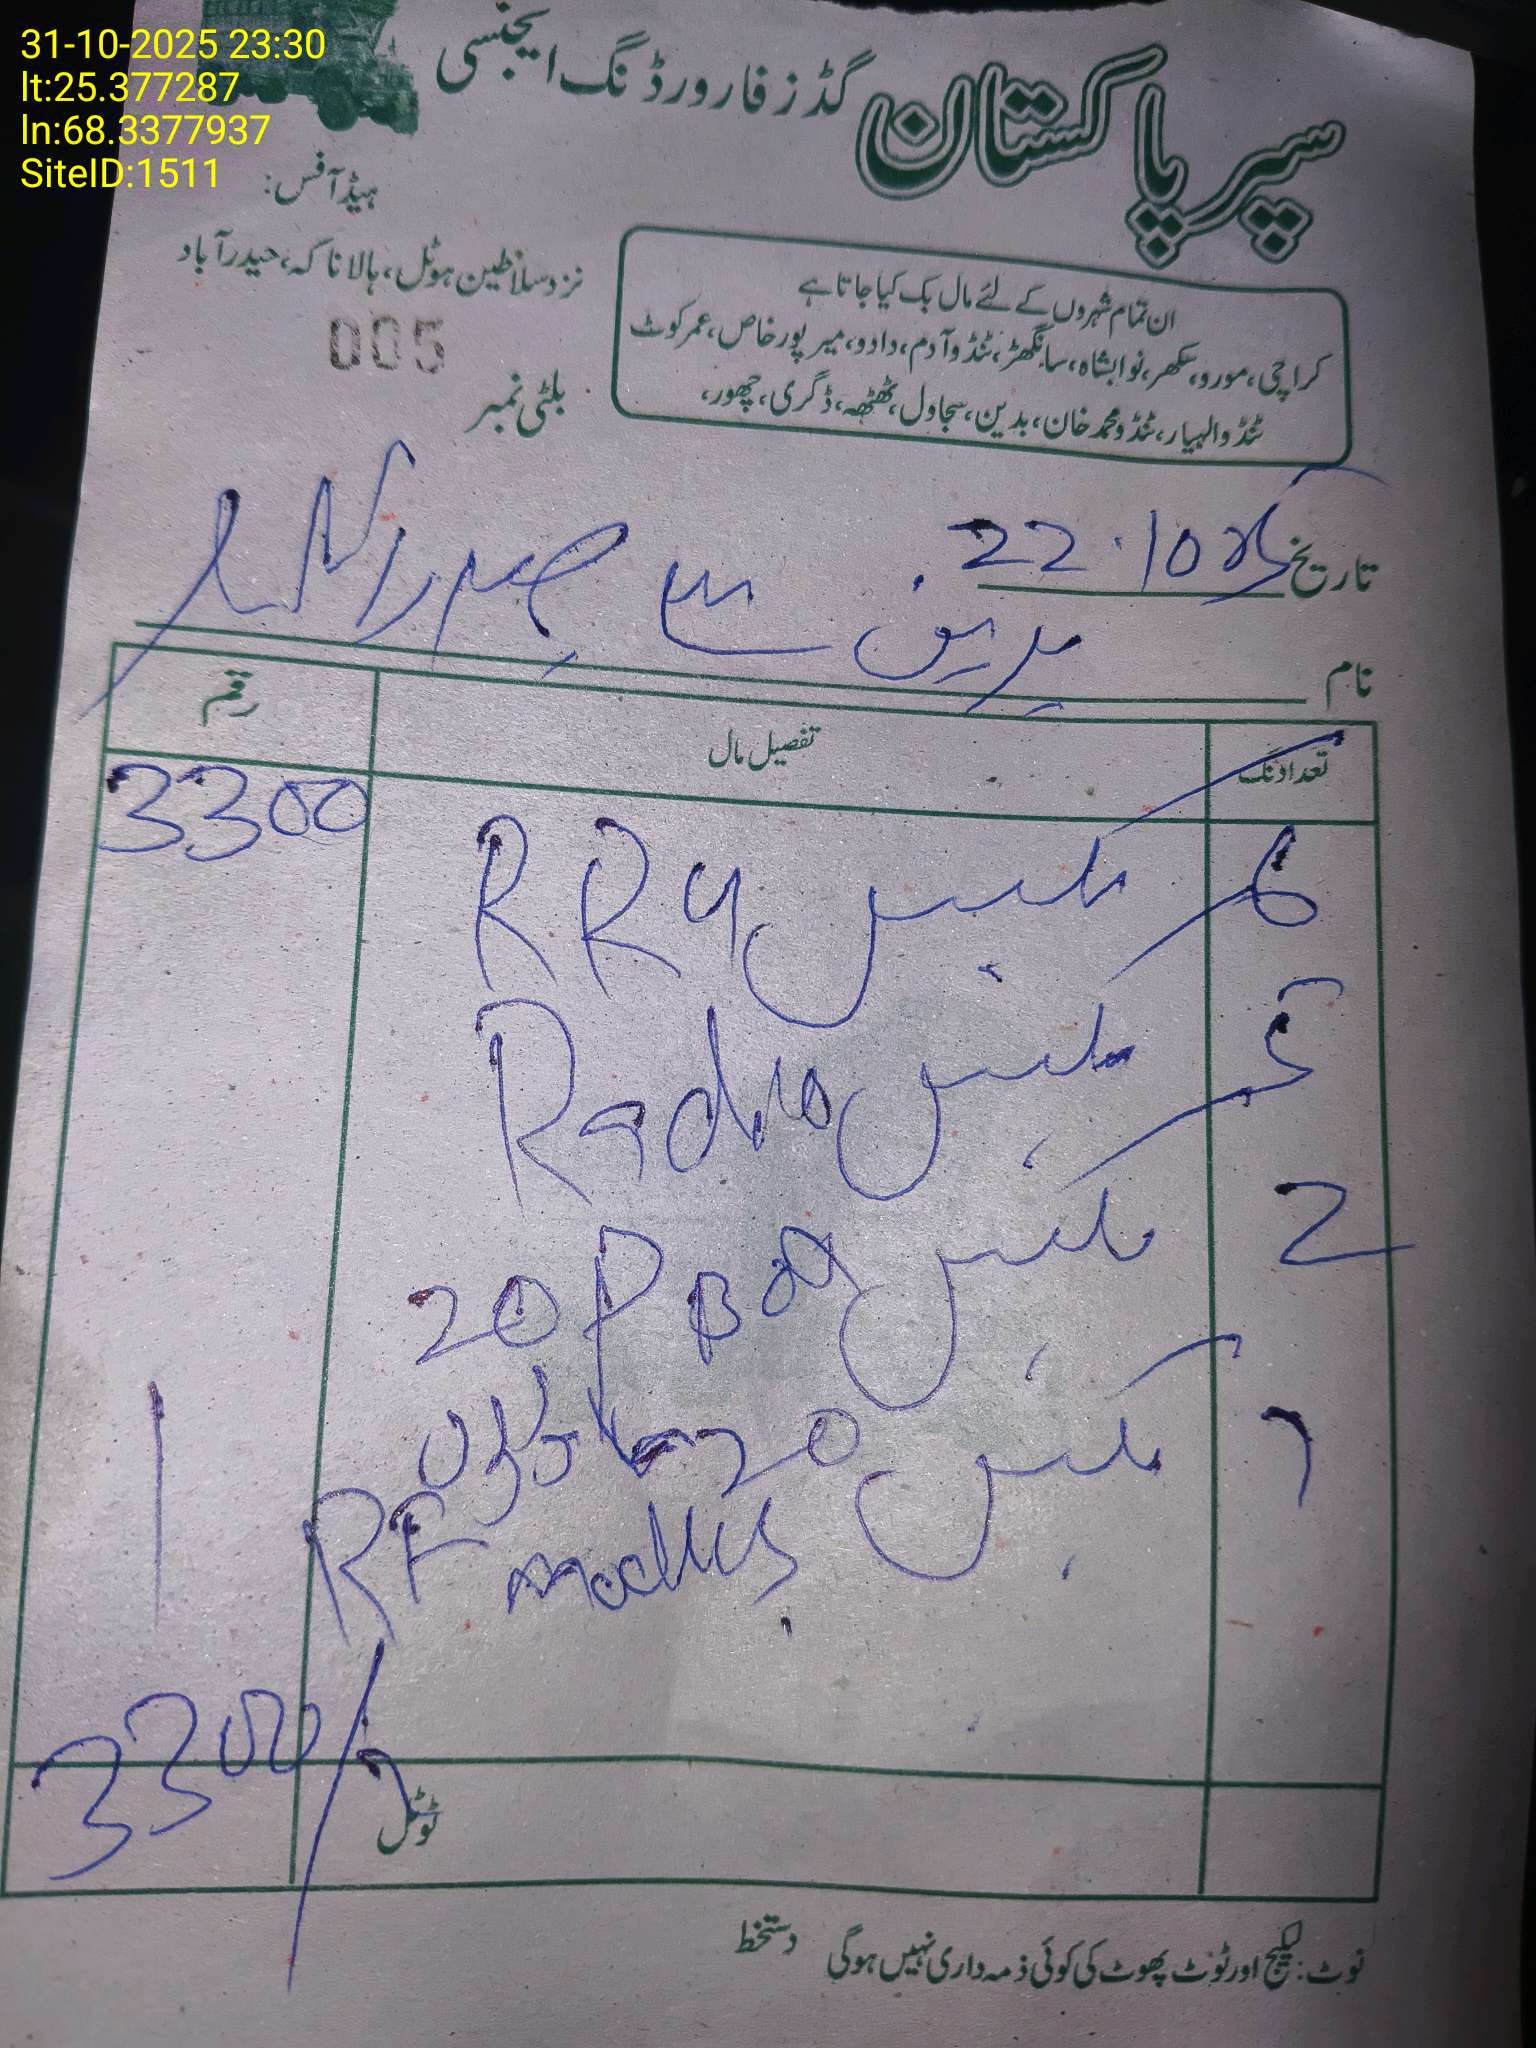 31-10-2025 23:30
lt:25.377287
ln:68.3377937
SiteID:1511
سپر پاکستان گڈز فارورڈنگ ایجنسی
ہیڈ آفس:
نزد سلاطین ہوٹل، ہالا ناکہ، حیدرآباد
005
بلٹی نمبر
ان تمام شہروں کے لئے مال بک کیا جاتا ہے
کراچی، مورو، سکھر، نوابشاہ، سانگھڑ، ٹنڈو آدم، دادو، میر پور خاص، عمر کوٹ
ٹنڈو الہیار، ٹنڈو محمد خان، بدین، سجاول، ٹھٹھہ، ڈگری، چھور،
تاریخ 22.10.25
نام بدین سے حیدرآباد
تعداد نگ تفصیل مال رقم
6 RRU 3300
5 Radio
2 20P
1
RF
3300/
ٹوٹل
نوٹ: لیکیج اور ٹوٹ پھوٹ کی کوئی ذمہ داری نہیں ہوگی دستخط